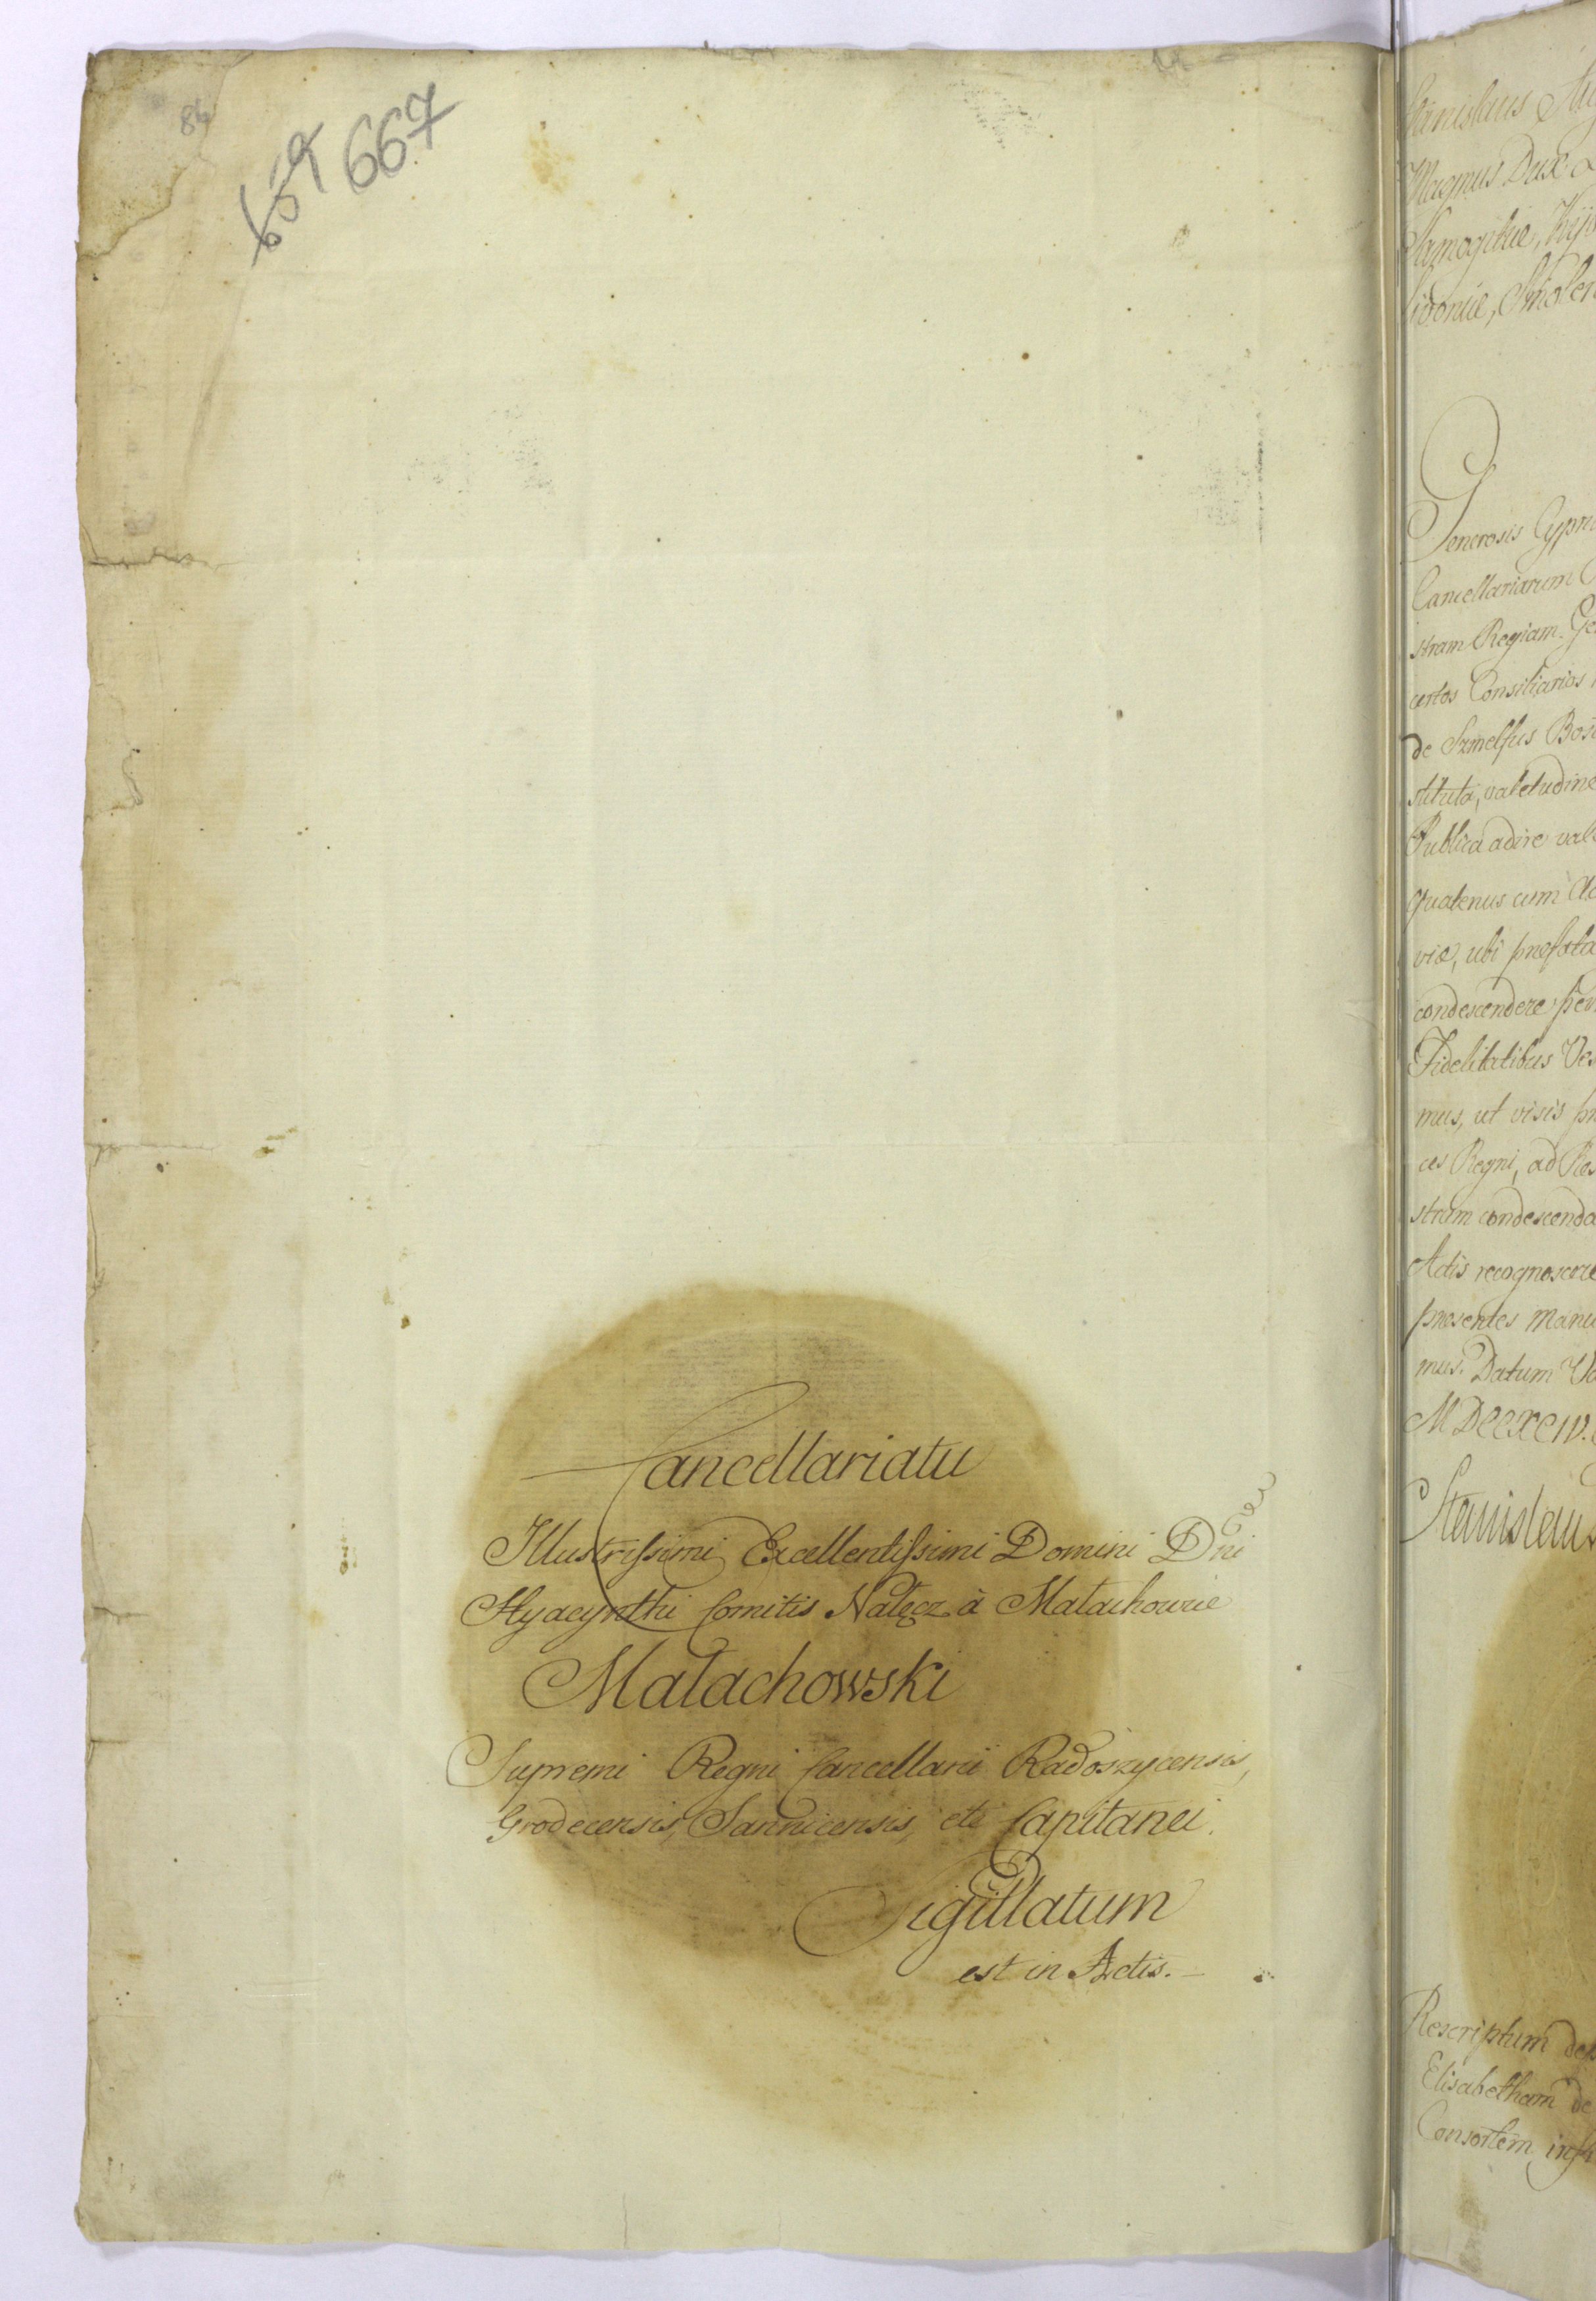 86
659 667
Cancellariatu
Illustrissimi Excellentissimi Domini Dni
Hyacynthi Comitis Nałęcz à Małachowice
Małachowski
Supremi Regni Cancellarii Radoszycensis,
Grodecensis, Sannicensis, etc Capitanei.
Sigillatum
est in Actis.
Stanislaus
Magnus Dux
Samogitiæ, Kijo
Livoniæ, Smolen
Generosis Cypri
Cancellariarum
stram Regiam. Ge
certos Consiliarios
de Szmelsus
stituta, valetudine
Publica adire val
quatenus cum Ac
viæ, ubi præfata
condescendere
Fidelitatibus Ves
mus, ut visis
ces Regni, ad
stram condescenda
Actis recognoscere
præsentes Manu
mus. Datum
MDCCXCIV.
Stanislaus
Rescriptum
Elisabetham de
Consortem